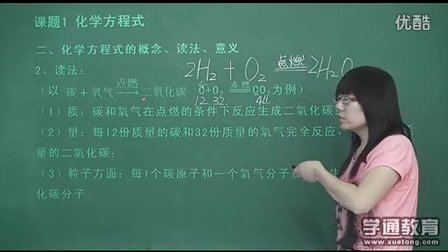 课题1 化学方程式
优酷
二、化学方程式的概念、读法、意义
2H₂ + O₂ 点燃 2H₂O
2、读法：
（以 碳 + 氧气 点燃 二氧化碳 C+O₂ 点燃 CO₂为例）
12 32 44
（1）质：碳和氧气在点燃的条件下反应生成二氧化碳
（2）量：每12份质量的碳和32份质量的氧气完全反应
量的二氧化碳；
（3）粒子方面：每1个碳原子和一个氧气分子
化碳分子
学通教育
www.xuetong.com